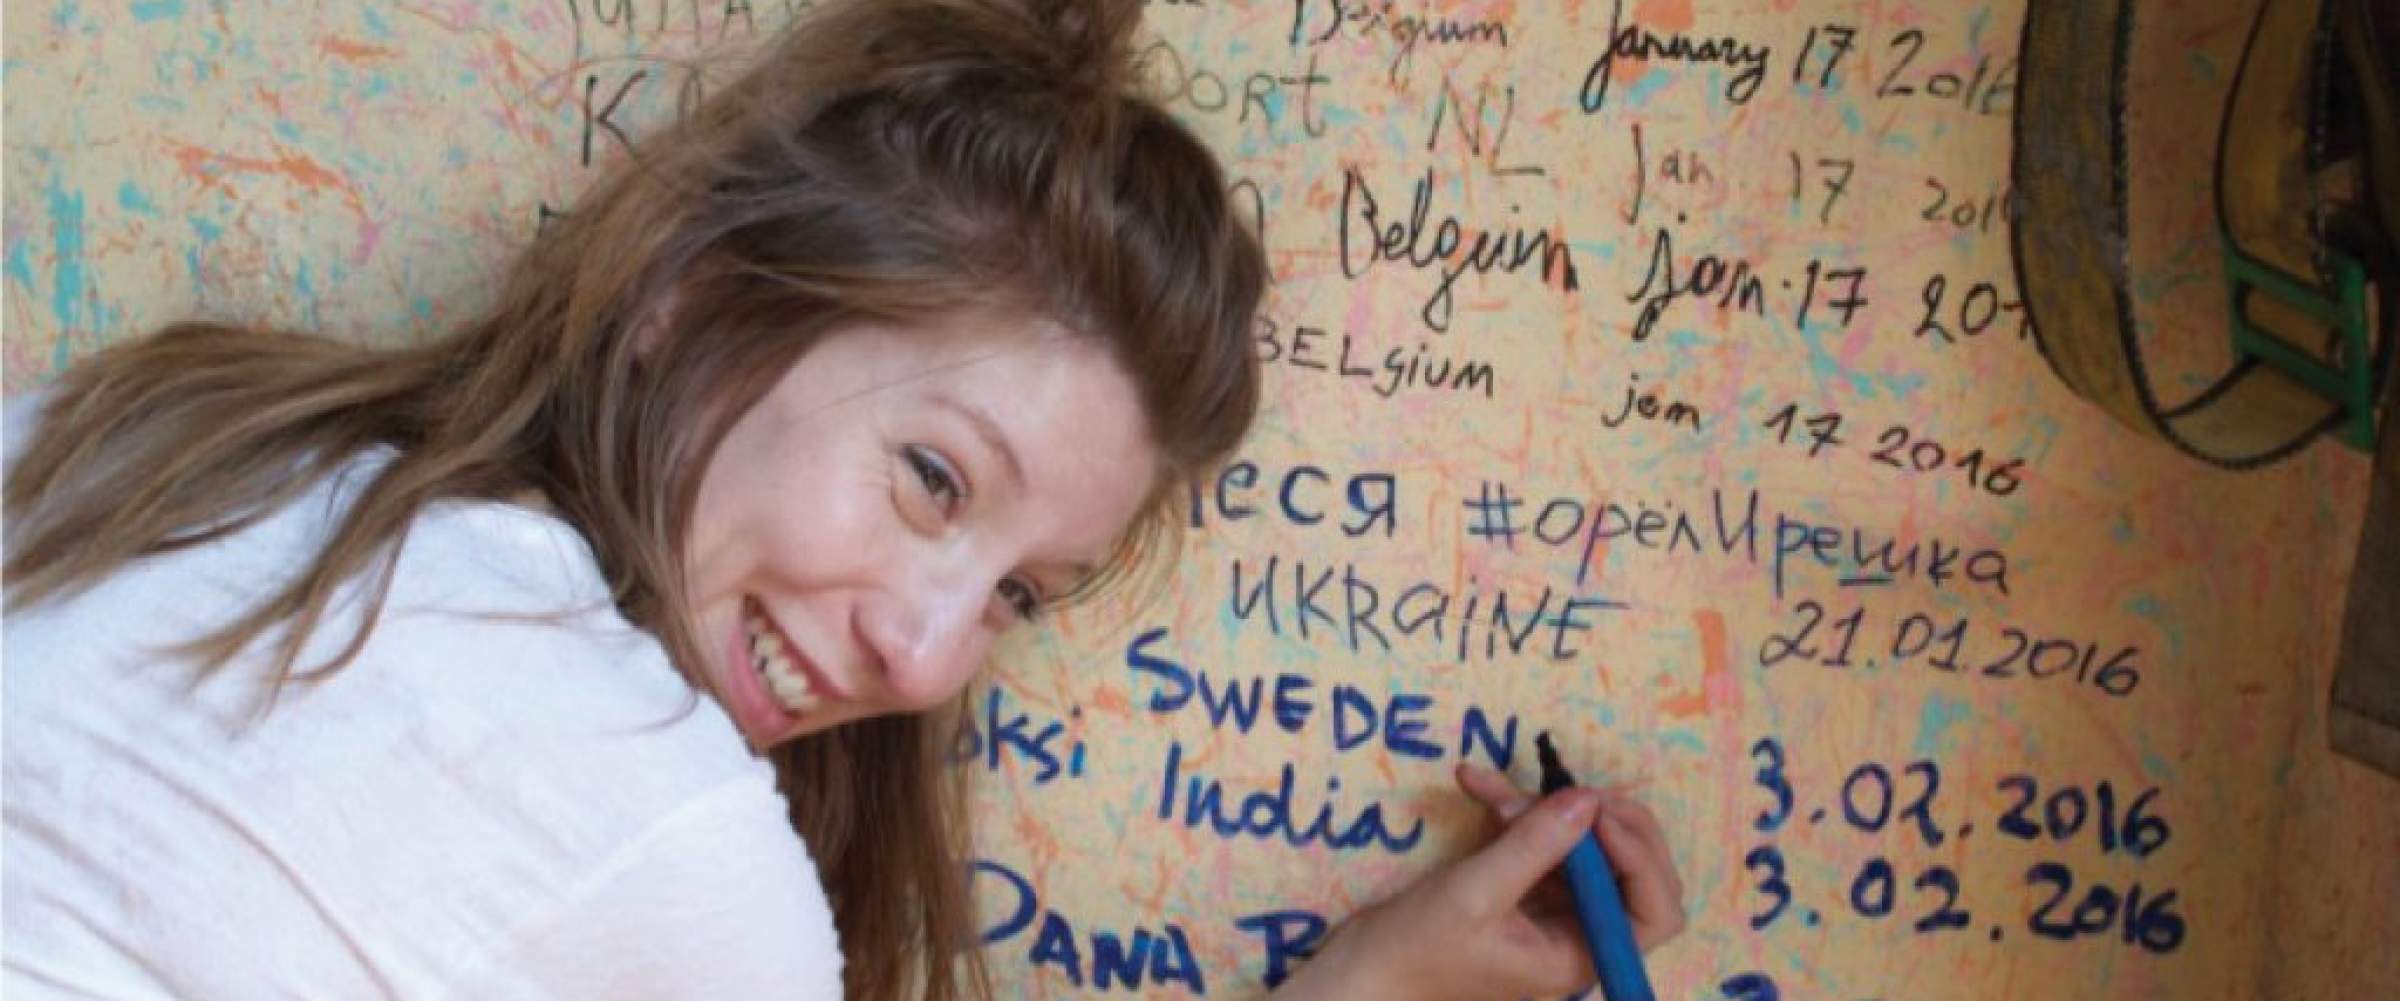 Belgium January 17 2016
OORT NL Jan 17 201
Belguim jan. 17 201
BELgium jan 17 2016
леся #орёлИрешка
UKRAINE 21.01.2016
SWEDEN 3.02.2016
oksi India 3.02.2016
DANA B